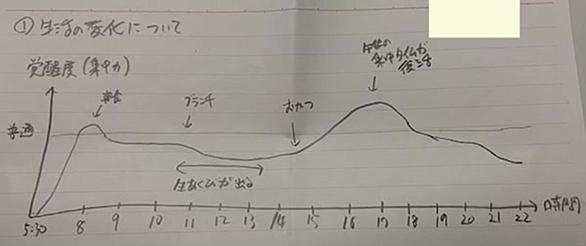 ① 生活の変化について
覚醒度(集中力)
朝食
ブランチ
おやつ
午後の
集中タイムが
復活
普通
生あくびが出る
5:30 8 9 10 11 12 13 14 15 16 17 18 19 20 21 22 時間